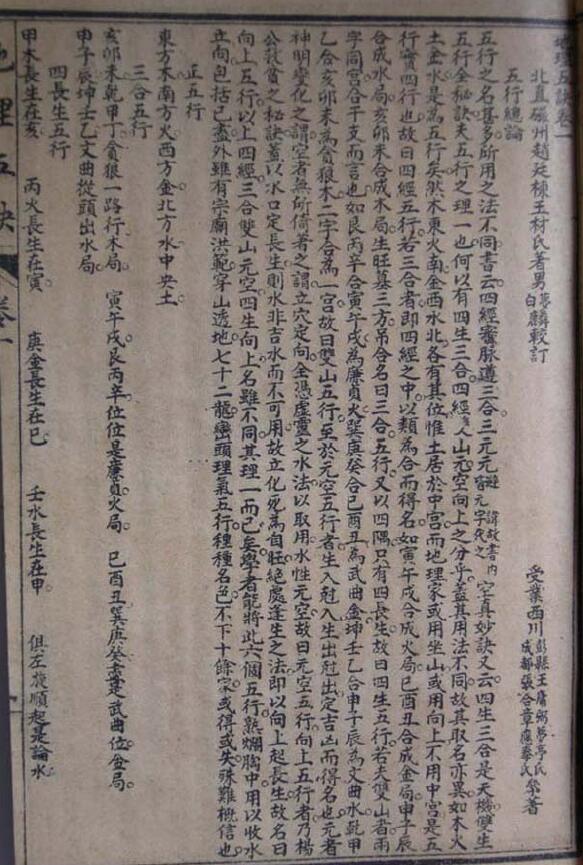 地理五訣卷一
北直磁州趙廷棟玉材氏著男夢麟白麟較訂
受業西川彭縣王庸弼夢亭氏成都張含章應泰氏叅著
五行總論
五行之名甚多所用之法不同書云四經審脈遵三合三元元避諱故書內皆元字代之空真妙訣又云四生三合是天機雙生
五行全秘訣夫五行之理一也何以有四生三合四經山元空向上之分乎蓋其用法不同故其取名亦異如木火
土金水是為五行矣然木東火南金西水北各有其位惟土居於中宮而地理家或用坐山或用向上不用中宮是五
行實四行也故曰四經五行若三合者即四經之中以類為合而得名如寅午戌合成火局巳酉丑合成金局申子辰
合成水局亥卯未合成木局生旺墓三方吊合名曰三合五行又以四隅只有四長生故曰四生五行若夫雙山者兩
字同宮合干支而言也如艮丙辛合寅午戌為廉貞火巽庚癸合巳酉丑為武曲金坤壬乙合申子辰為文曲水乾甲
乙合亥卯未為貪狼木二字合為一宮故曰雙山五行至於元空五行者生入尅入生出尅出定吉凶而得名也元者
神明變化之謂空者無所倚着之謂立穴定向全憑虛靈之水法以取用水性元空故曰元空五行向上五行者乃楊
公救貧之秘訣蓋以水口定長生則水非吉水而不可用故立化死為自旺絕處逢生之法即以向上起長生故名曰
向上五行以上四經三合雙山元空四生向上名雖不同其理一而已矣學者能將此六個五行熟爛胸中用以收水
立向包括已盡外雖有宗廟洪範穿山透地七十二龍巒頭理氣五行種種名色不下十餘家或得或失殊難概信也
正五行
東方木南方火西方金北方水中央土
三合五行
亥卯未乾甲丁貪狼一路行木局　寅午戌艮丙辛位位是廉貞火局　巳酉丑巽庚癸盡是武曲位金局
申子辰坤壬乙文曲從頭出水局
四長生五行
甲木長生在亥　丙火長生在寅　庚金長生在巳　壬水長生在申　俱左旋順起是論水
地理五訣　卷一